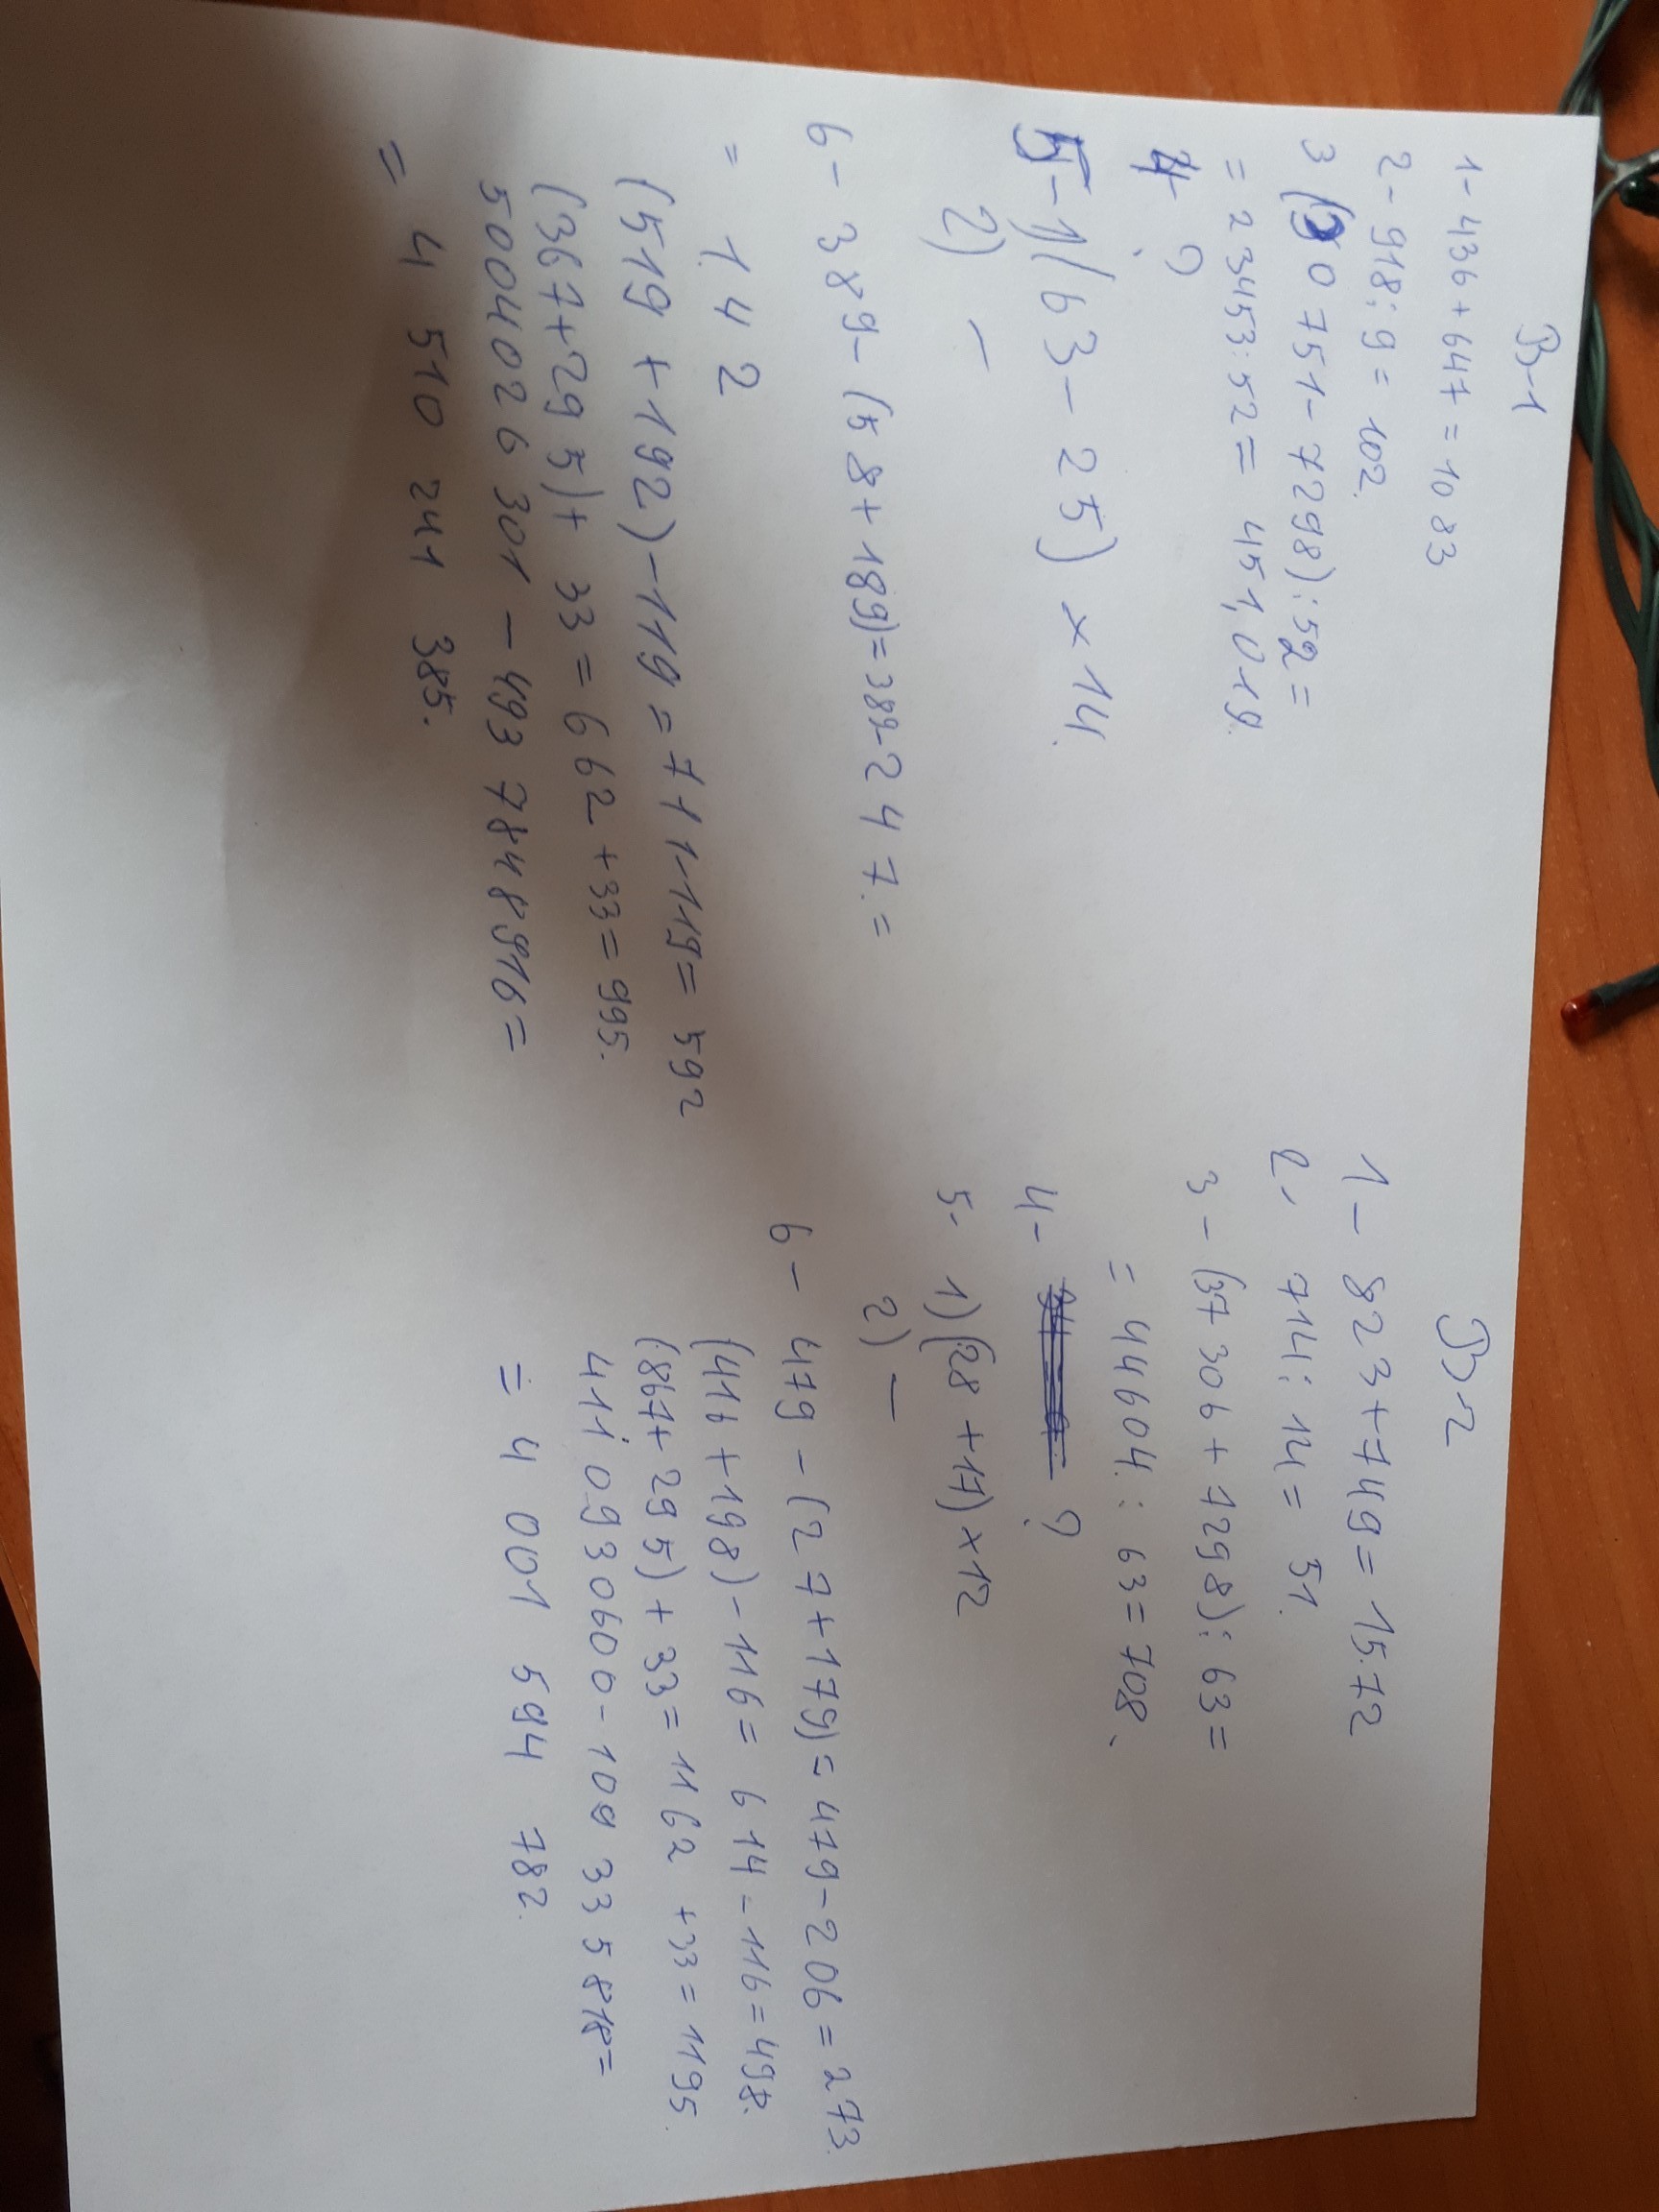 В-1
1- 436+647=1083
2- 918:9= 102.
3 (30751-7298):52=
= 23453:52= 451,019.
4 ?
5-1)(63-25)×14.
2) –
6- 389-(58+189)=389-247.=
= 142
(519+192)-119=711-119=592
(367+295)+33=662+33=995.
5004026301-4937848916=
= 4 510 241 385.
В-2
1- 823+749=1572
2, 714:14= 51.
3-(37306+7298):63=
= 44604:63=708.
4- ?
5. 1)(28+17)×12
2) –
6- 479-(27+179)=479-206=273.
(416+198)-116=614-116=498.
(867+295)+33=1162+33=1195.
4110930600-109335818=
= 4 001 594 782.